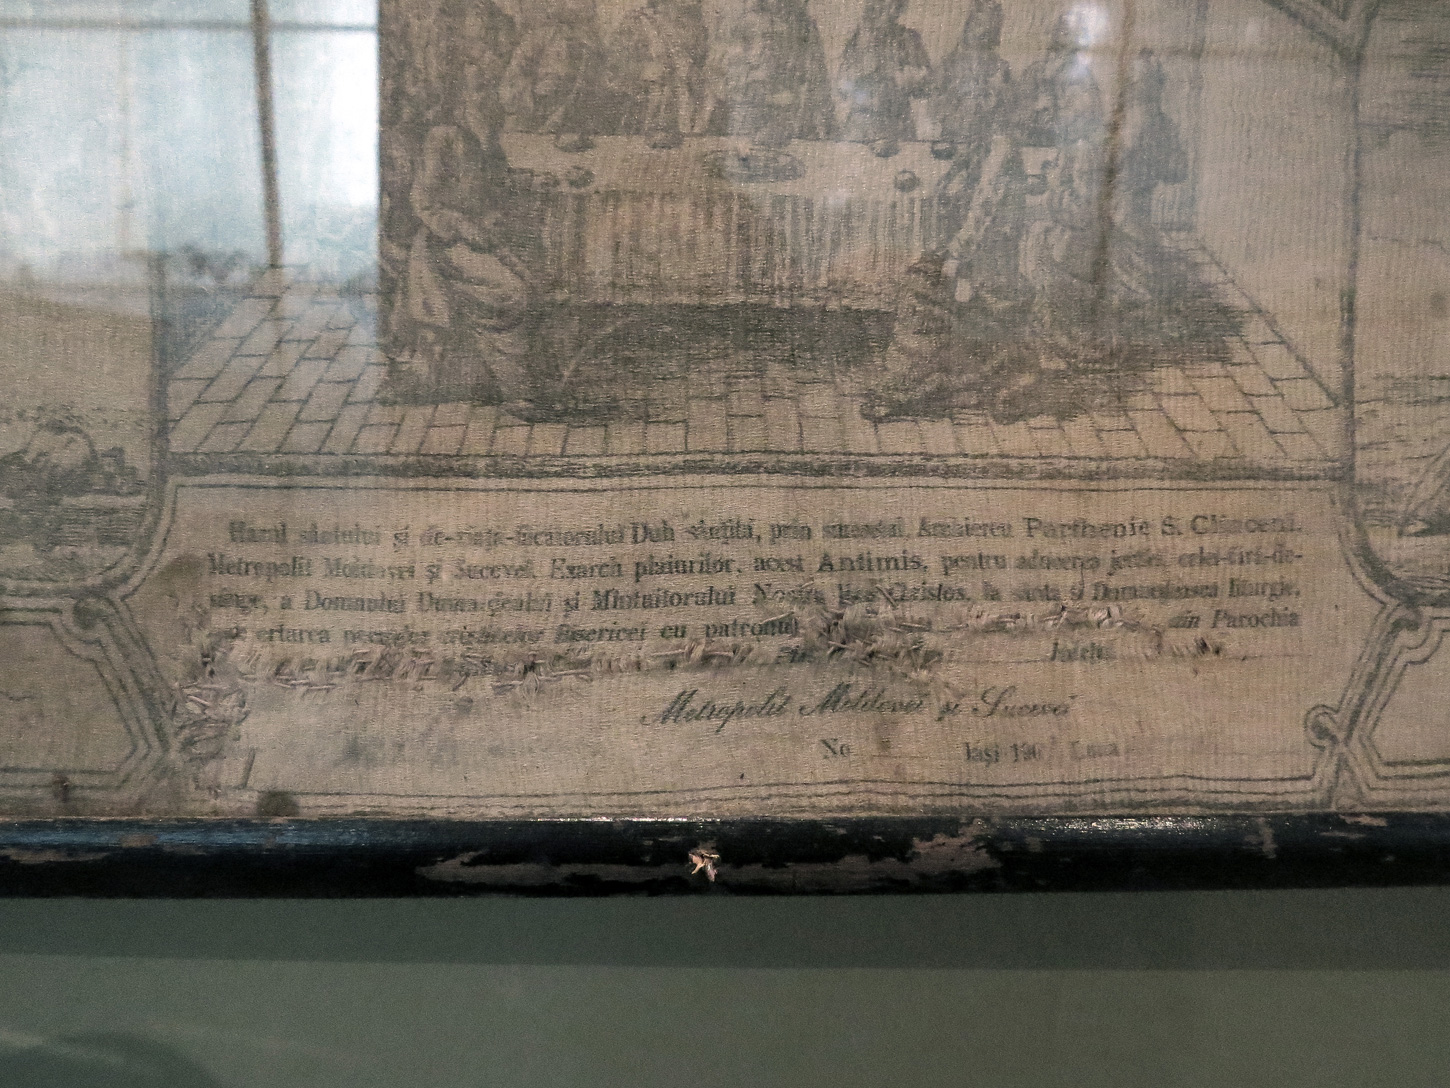 Harul sântului și de-viață-făcătorului Duh sfințit, prin smeritul Arhiereu Parthenie S. Clinceni,
Metropolit Moldovei și Sucevei, Exarch plaiurilor, acest Antimis, pentru aducerea jertfei celei-fără-de-
sânge, a Domnului Dumnezeului și Mîntuitorului Nostru Isus Christos, la sânta și Dumnezeiasca liturgie,
ertarea Bisericei cu patronul din Parochia
Județu
Metropolit Moldovei și Sucevei
No Iași 190 Luna